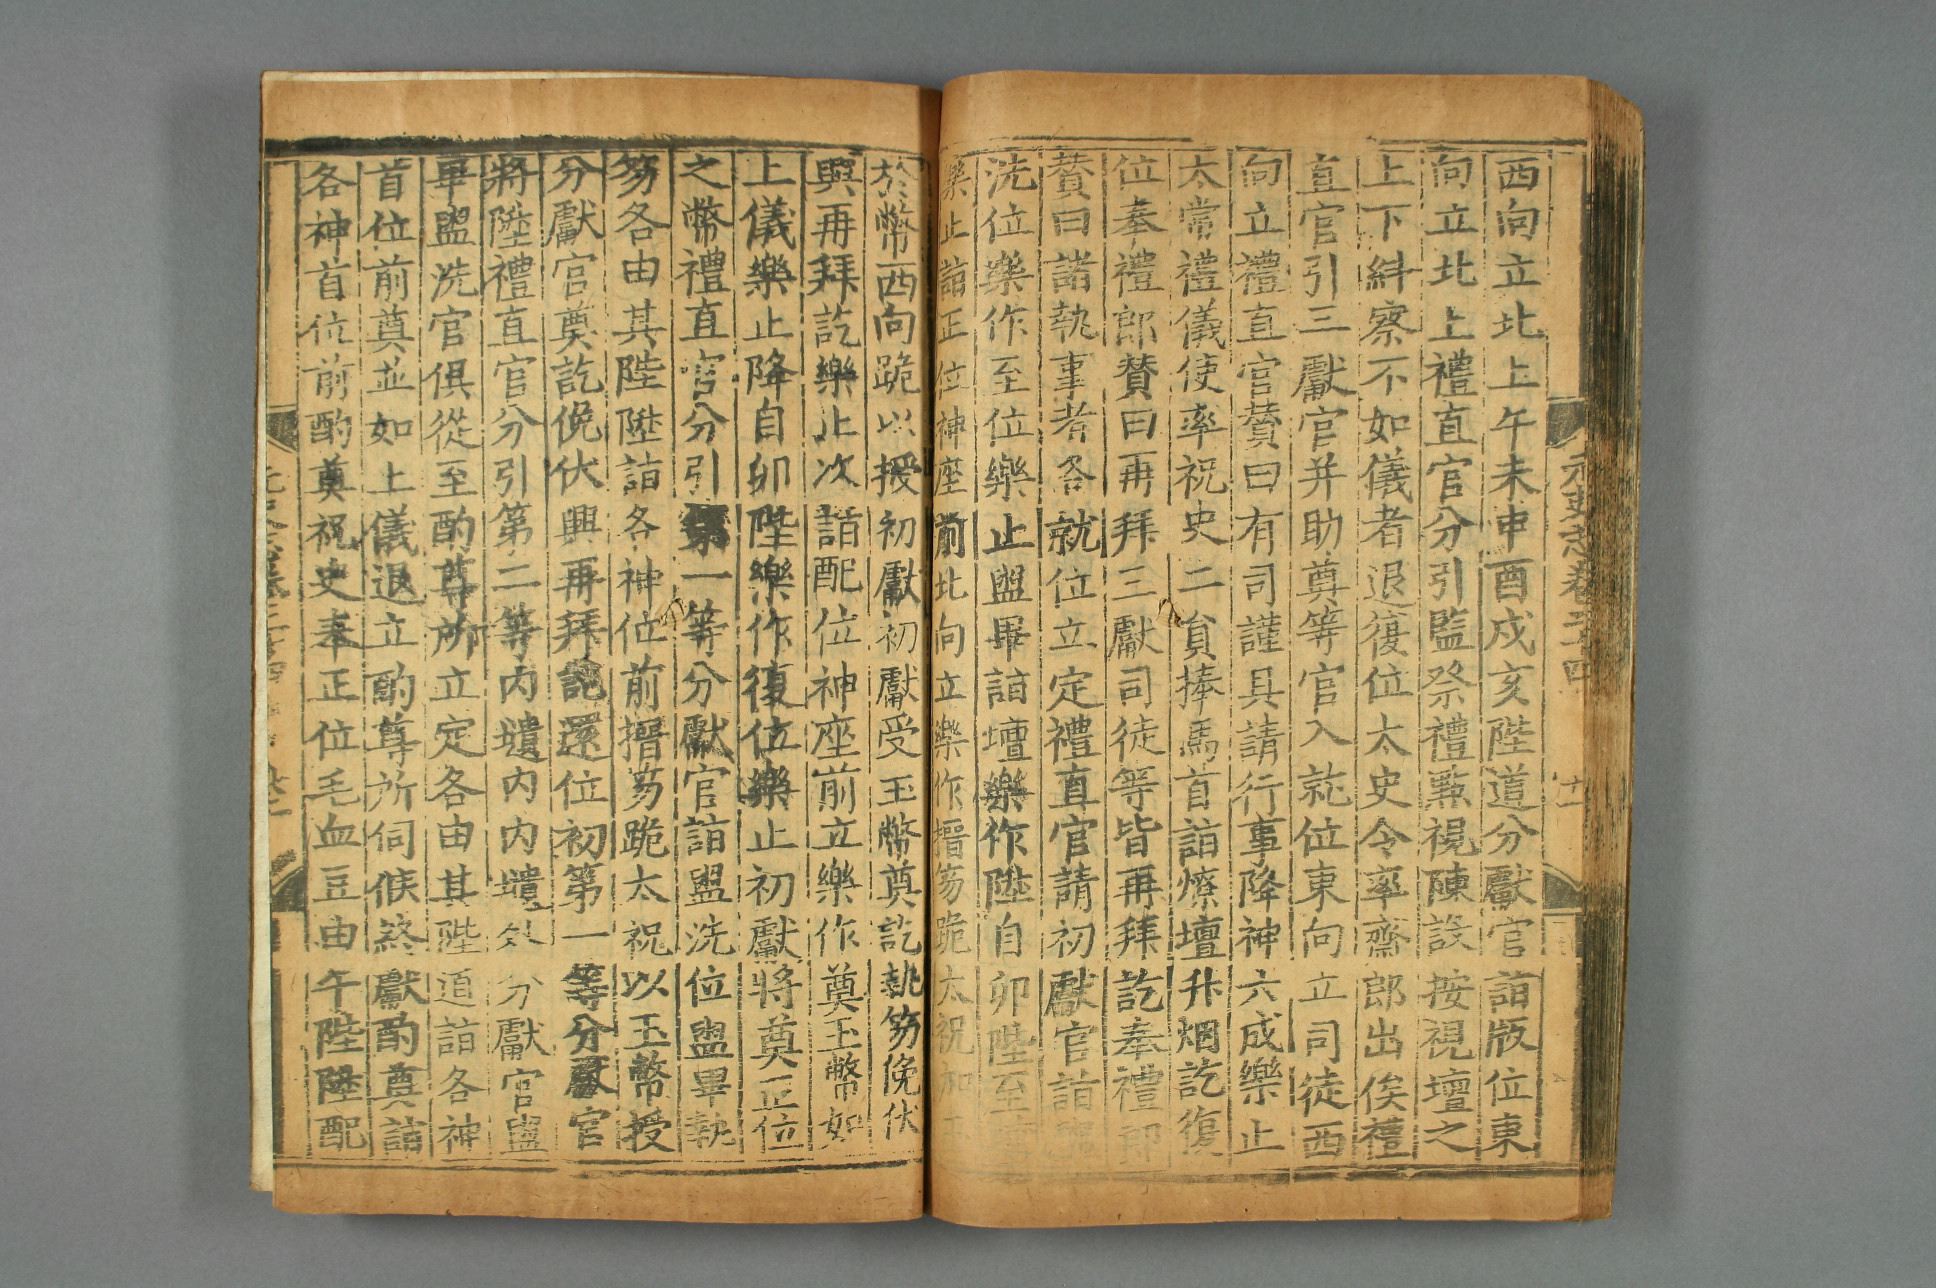 元史志卷二十四
十一
西向立北上午未申酉戌亥陛道分獻官詣版位東
向立北上禮直官分引監祭禮㸃視陳設按視壇之
上下糾察不如儀者退復位太史令率齋郎出俟禮
直官引三獻官并助奠等官入就位東向立司徒西
向立禮直官贊曰有司謹具請行事降神六成樂止
太常禮儀使率祝史二員捧馬首詣燎壇升烟訖復
位奉禮郎贊曰再拜三獻司徒等皆再拜訖奉禮郎
贊曰諸執事者各就位立定禮直官請初獻官詣盥
洗位樂作至位樂止盥畢詣壇樂作陞自卯陛至壇
樂止詣正位神座前北向立樂作搢笏跪太祝加玉
於幣西向跪以授初獻初獻受玉幣奠訖執笏俛伏
興再拜訖樂止次詣配位神座前立樂作奠玉幣如
上儀樂止降自卯陛樂作復位樂止初獻將奠正位
之幣禮直官分引第一等分獻官詣盥洗位盥畢執
笏各由其陛陞詣各神位前搢笏跪太祝以玉幣授
分獻官奠訖俛伏興再拜訖還位初第一等分獻官
將陞禮直官分引第二等內壝內內壝外分獻官盥
畢盥洗官俱從至酌尊所立定各由其陛道詣各神
首位前奠並如上儀退立酌尊所伺候終獻酌奠詣
各神首位前酌奠祝史奉正位毛血豆由午陛陞配